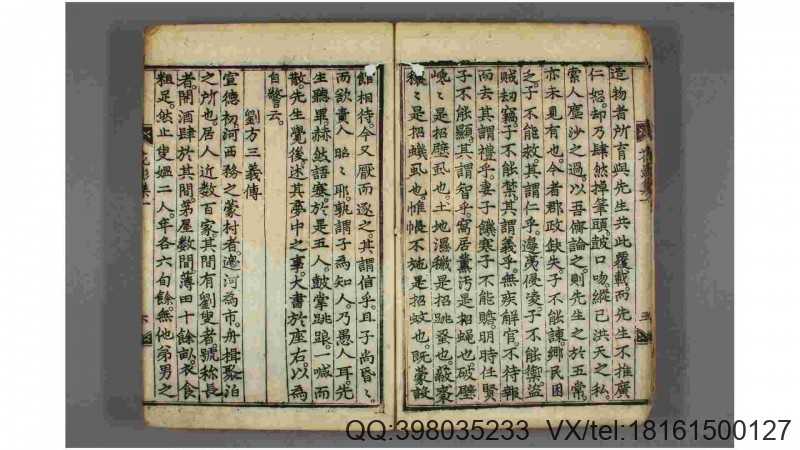 造物者所育與先生共此覆載而先生不推廣
仁恕却乃肆然掉筆頭鼓口吻縱己洪天之私
索人塵沙之過以吾儕論之則先生之於五常
亦未見有也今者郡政缺失子不能諫鄉民困
乏子不能救其謂仁乎邊夷侵凌子不能禦盜
賊劫竊子不能禁其謂義乎無疾解官不待報
而去其謂禮乎妻子饑寒子不能贍明時任賢
子不能顯其謂智乎窩居薰汚是招蠅也破壁
是招壁虱也土地濕穢是招跳蚤也蔽衾
是招蟣虱也帷帳不施是招蚊也既蒙設
館相待今又厭而逐之其謂信乎且子尚昏〻
而欲責人昭〻耶孰謂子為知人乃愚人耳先
生聽畢赫然語塞於是五人鼓掌跳踉一喊而
散先生覺後述其夢中之事大書於座右以為
自警云
劉方三義傳
宣德初河西務之蒙村者邊河為市舟楫聚泊
之所也居人近數百家其間有劉叟者號稱長
者開酒肆於其間茅屋數間薄田十餘畝衣食
粗足然止叟媼二人年各六旬餘無他弟男之
QQ:398035233 VX/tel:18161500127